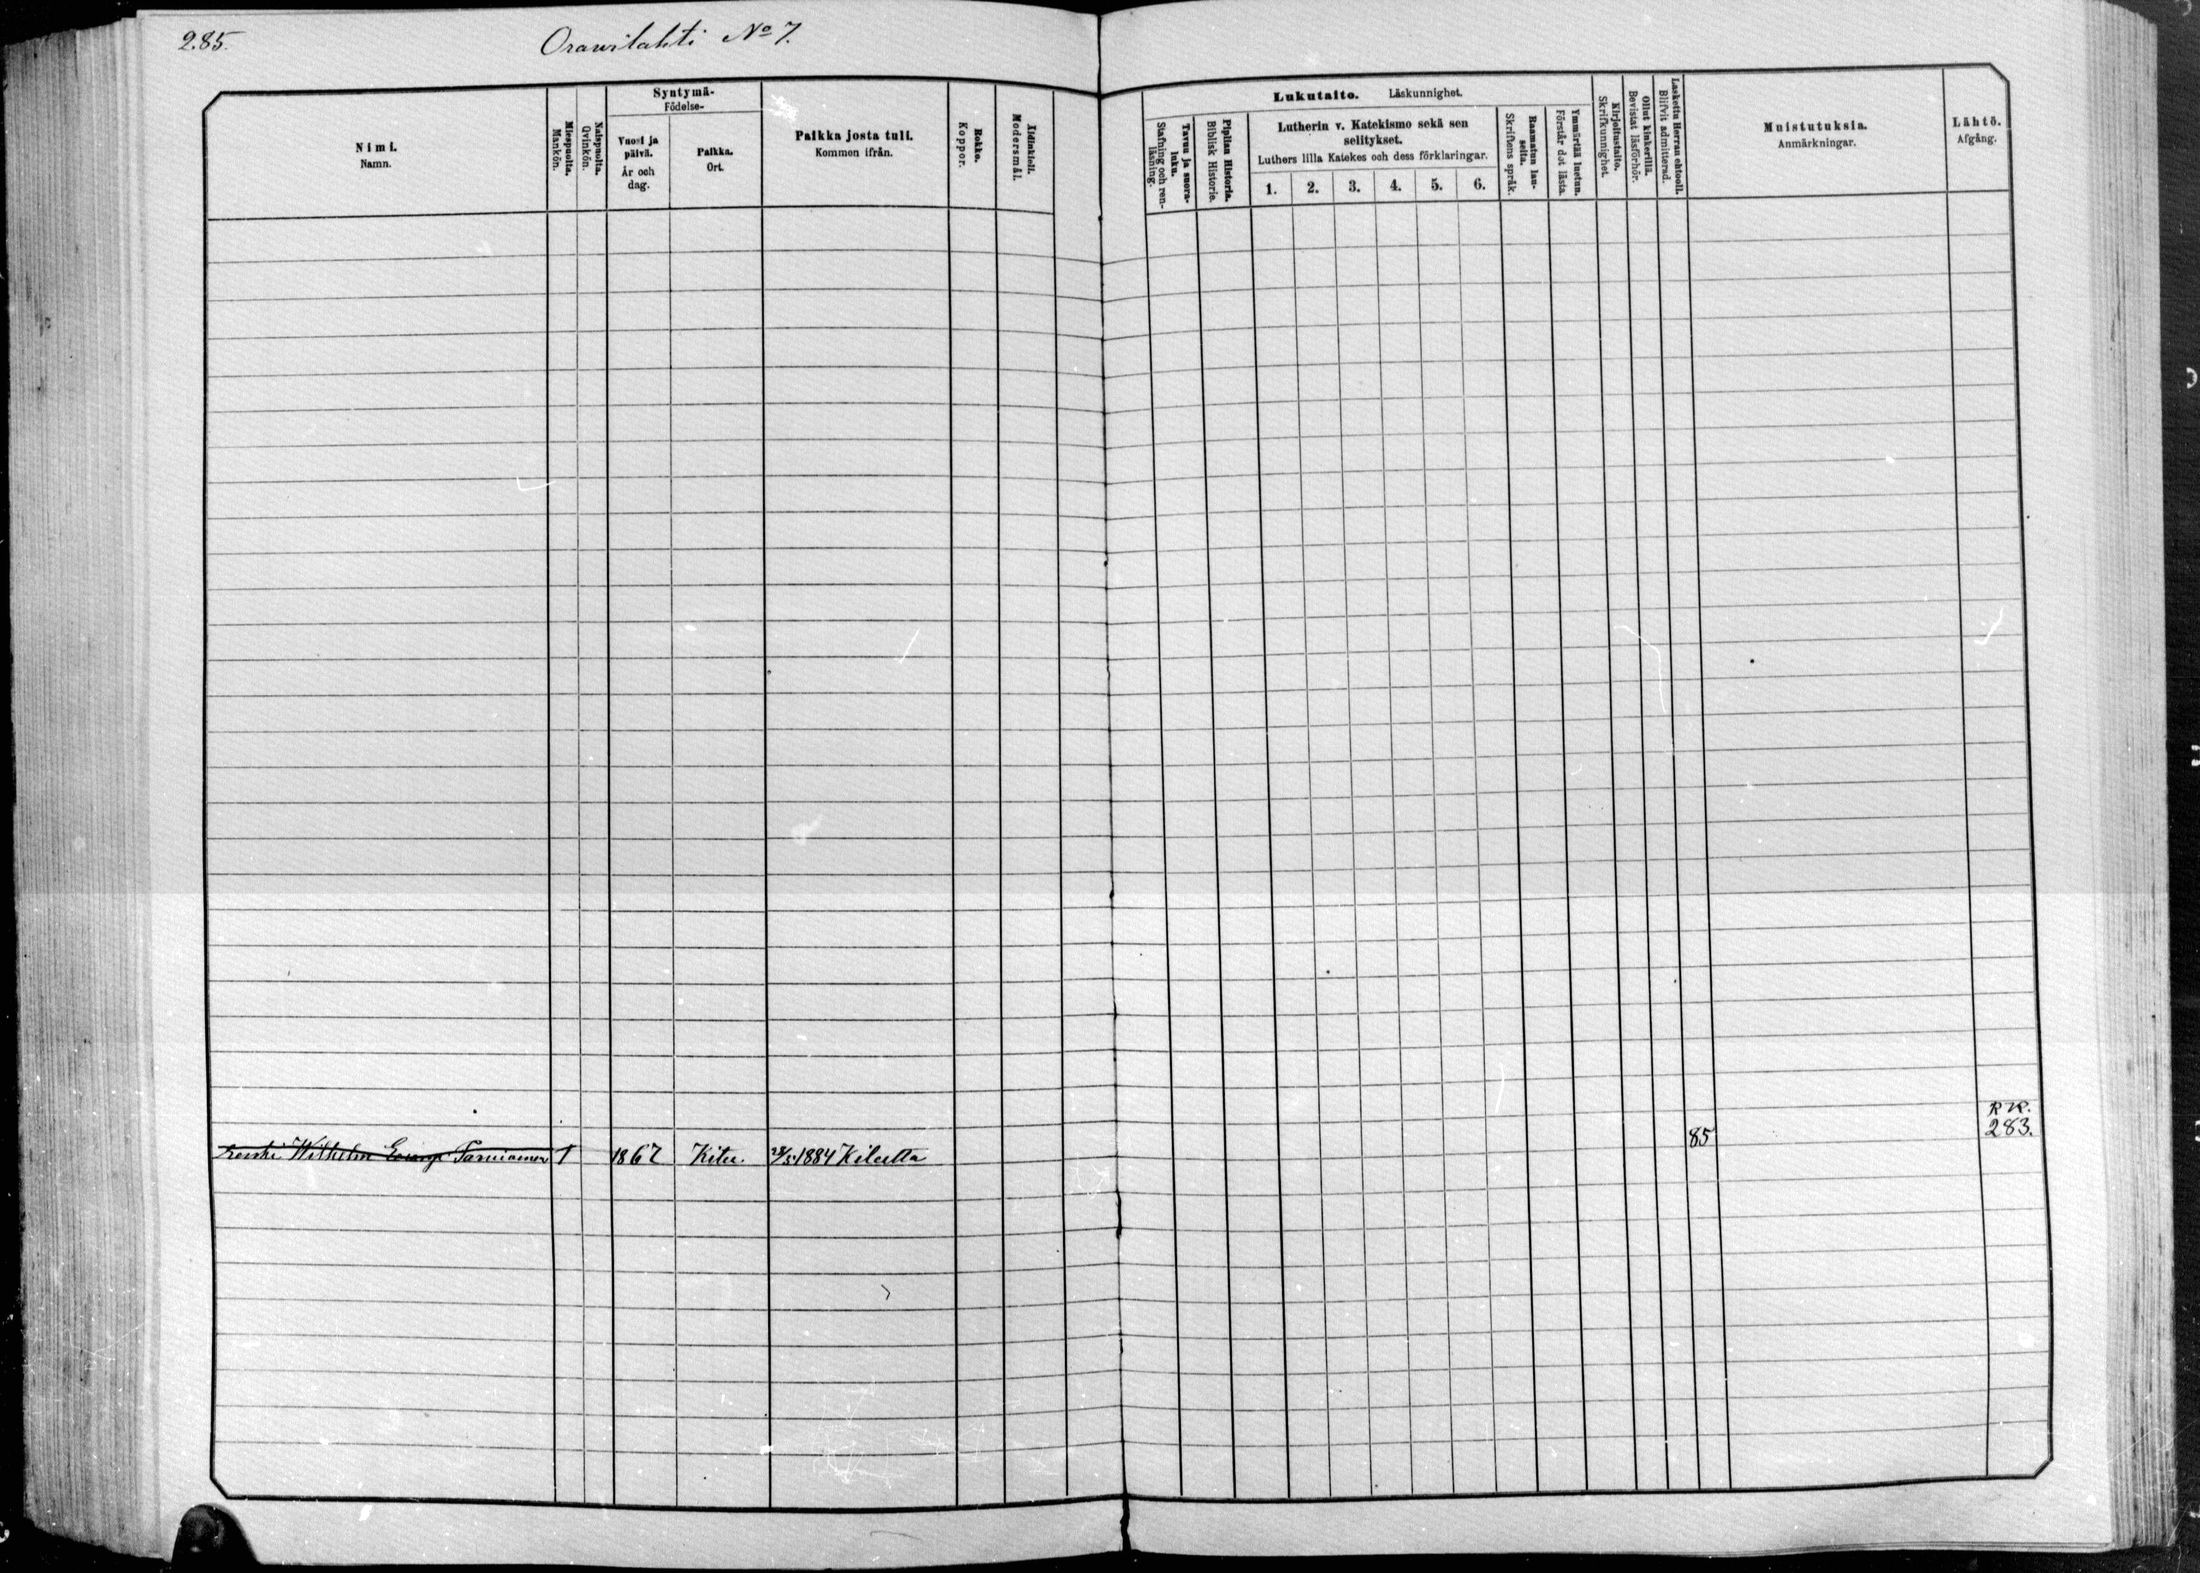 285.
Orawilahti No 7.
Nimi.
Namn.
Miespuolta.
Mankön.
Naispuolta.
Qvinkön.
Syntymä-
Födelse-
Vuosi ja
päivä.
År och
dag.
Paikka.
Ort.
Paikka josta tuli.
Kommen ifrån.
Rokko.
Koppor.
Äidinkieli.
Modersmål.
Lukutaito. Läskunnighet.
Tavuu ja suora-
luku.
Stafning och ren-
läsning.
Piplian Historia.
Biblisk Historie.
Lutherin v. Katekismo sekä sen
selitykset.
Luthers lilla Katekes och dess förklaringar.
1. 2. 3. 4. 5. 6.
Raamatun lau-
seita.
Skriftens språk.
Ymmärtää luetun.
Förstår det lästa.
Kirjoitustaito.
Skrifkunnighet.
Ollut kinkerillä.
Bevistat läsförhör.
Laskettu Herran ehtooll.
Blifvit admitterad.
Muistutuksia.
Anmärkningar.
Lähtö.
Afgång.
Wilhelm 1 1867 Kitee 1884 Kiteeltä 85 RK.
283.